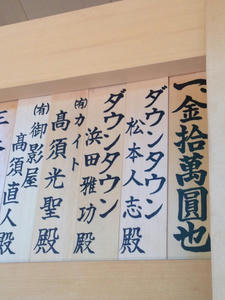 一、金拾萬圓也
ダウンタウン
松本人志殿
ダウンタウン
浜田雅功殿
㈲カイト
高須光聖殿
㈲御影屋
高須直人殿